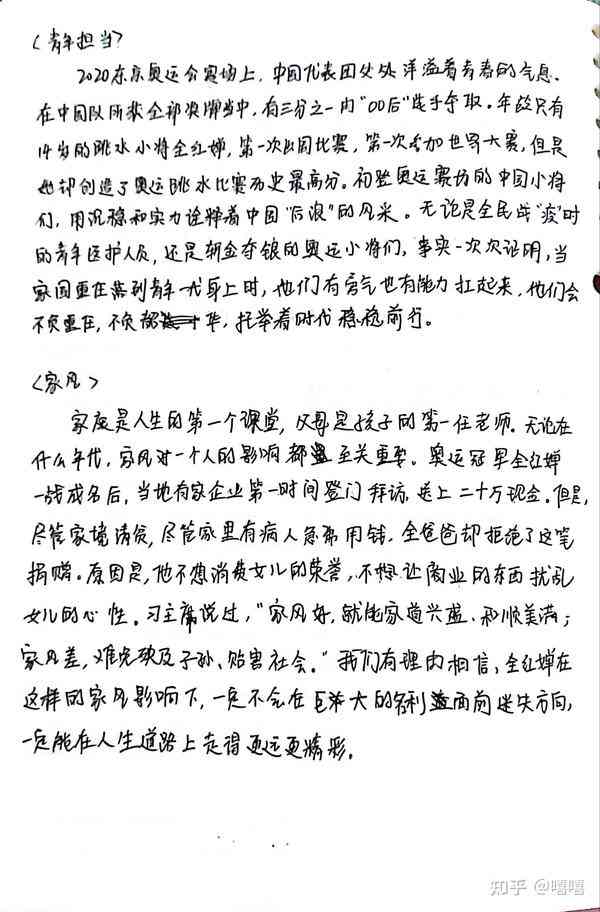 〈青年担当〉
2020东京奥运会赛场上，中国代表团处处洋溢着青春的气息.
在中国队所获全部奖牌当中，有三分之一由“00后”选手夺取。年龄只有
14岁的跳水小将全红婵，第一次出国比赛，第一次参加世界大赛，但是
她却创造了奥运跳水比赛历史最高分。初登奥运赛场的中国小将
们，用沉稳和实力诠释着中国“后浪”的风采。无论是全民战“疫”时
的青年医护人员，还是斩金夺银的奥运小将们，事实一次次证明，当
家国重任落到青年一代身上时，他们有勇气也有能力扛起来，他们会
不负重任，不负 华，托举着时代稳稳前行。
〈家风〉
家庭是人生的第一个课堂，父母是孩子的第一任老师。无论在
什么年代，家风对一个人的影响都至关重要。奥运冠军全红婵
一战成名后，当地有家企业第一时间登门拜访，送上二十万现金。但是，
尽管家境清贫，尽管家里有病人急需用钱，全爸爸却拒绝了这笔
捐赠。原因是，他不想消费女儿的荣誉，不想让商业的东西扰乱
女儿的心性。习主席说过，“家风好，就能家道兴盛、和顺美满；
家风差，难免殃及子孙、贻害社会。”我们有理由相信，全红婵在
这样的家风影响下，一定不会在巨大的名利面前迷失方向，
一定能在人生道路上走得更远更精彩。
知乎 @嘻嘻